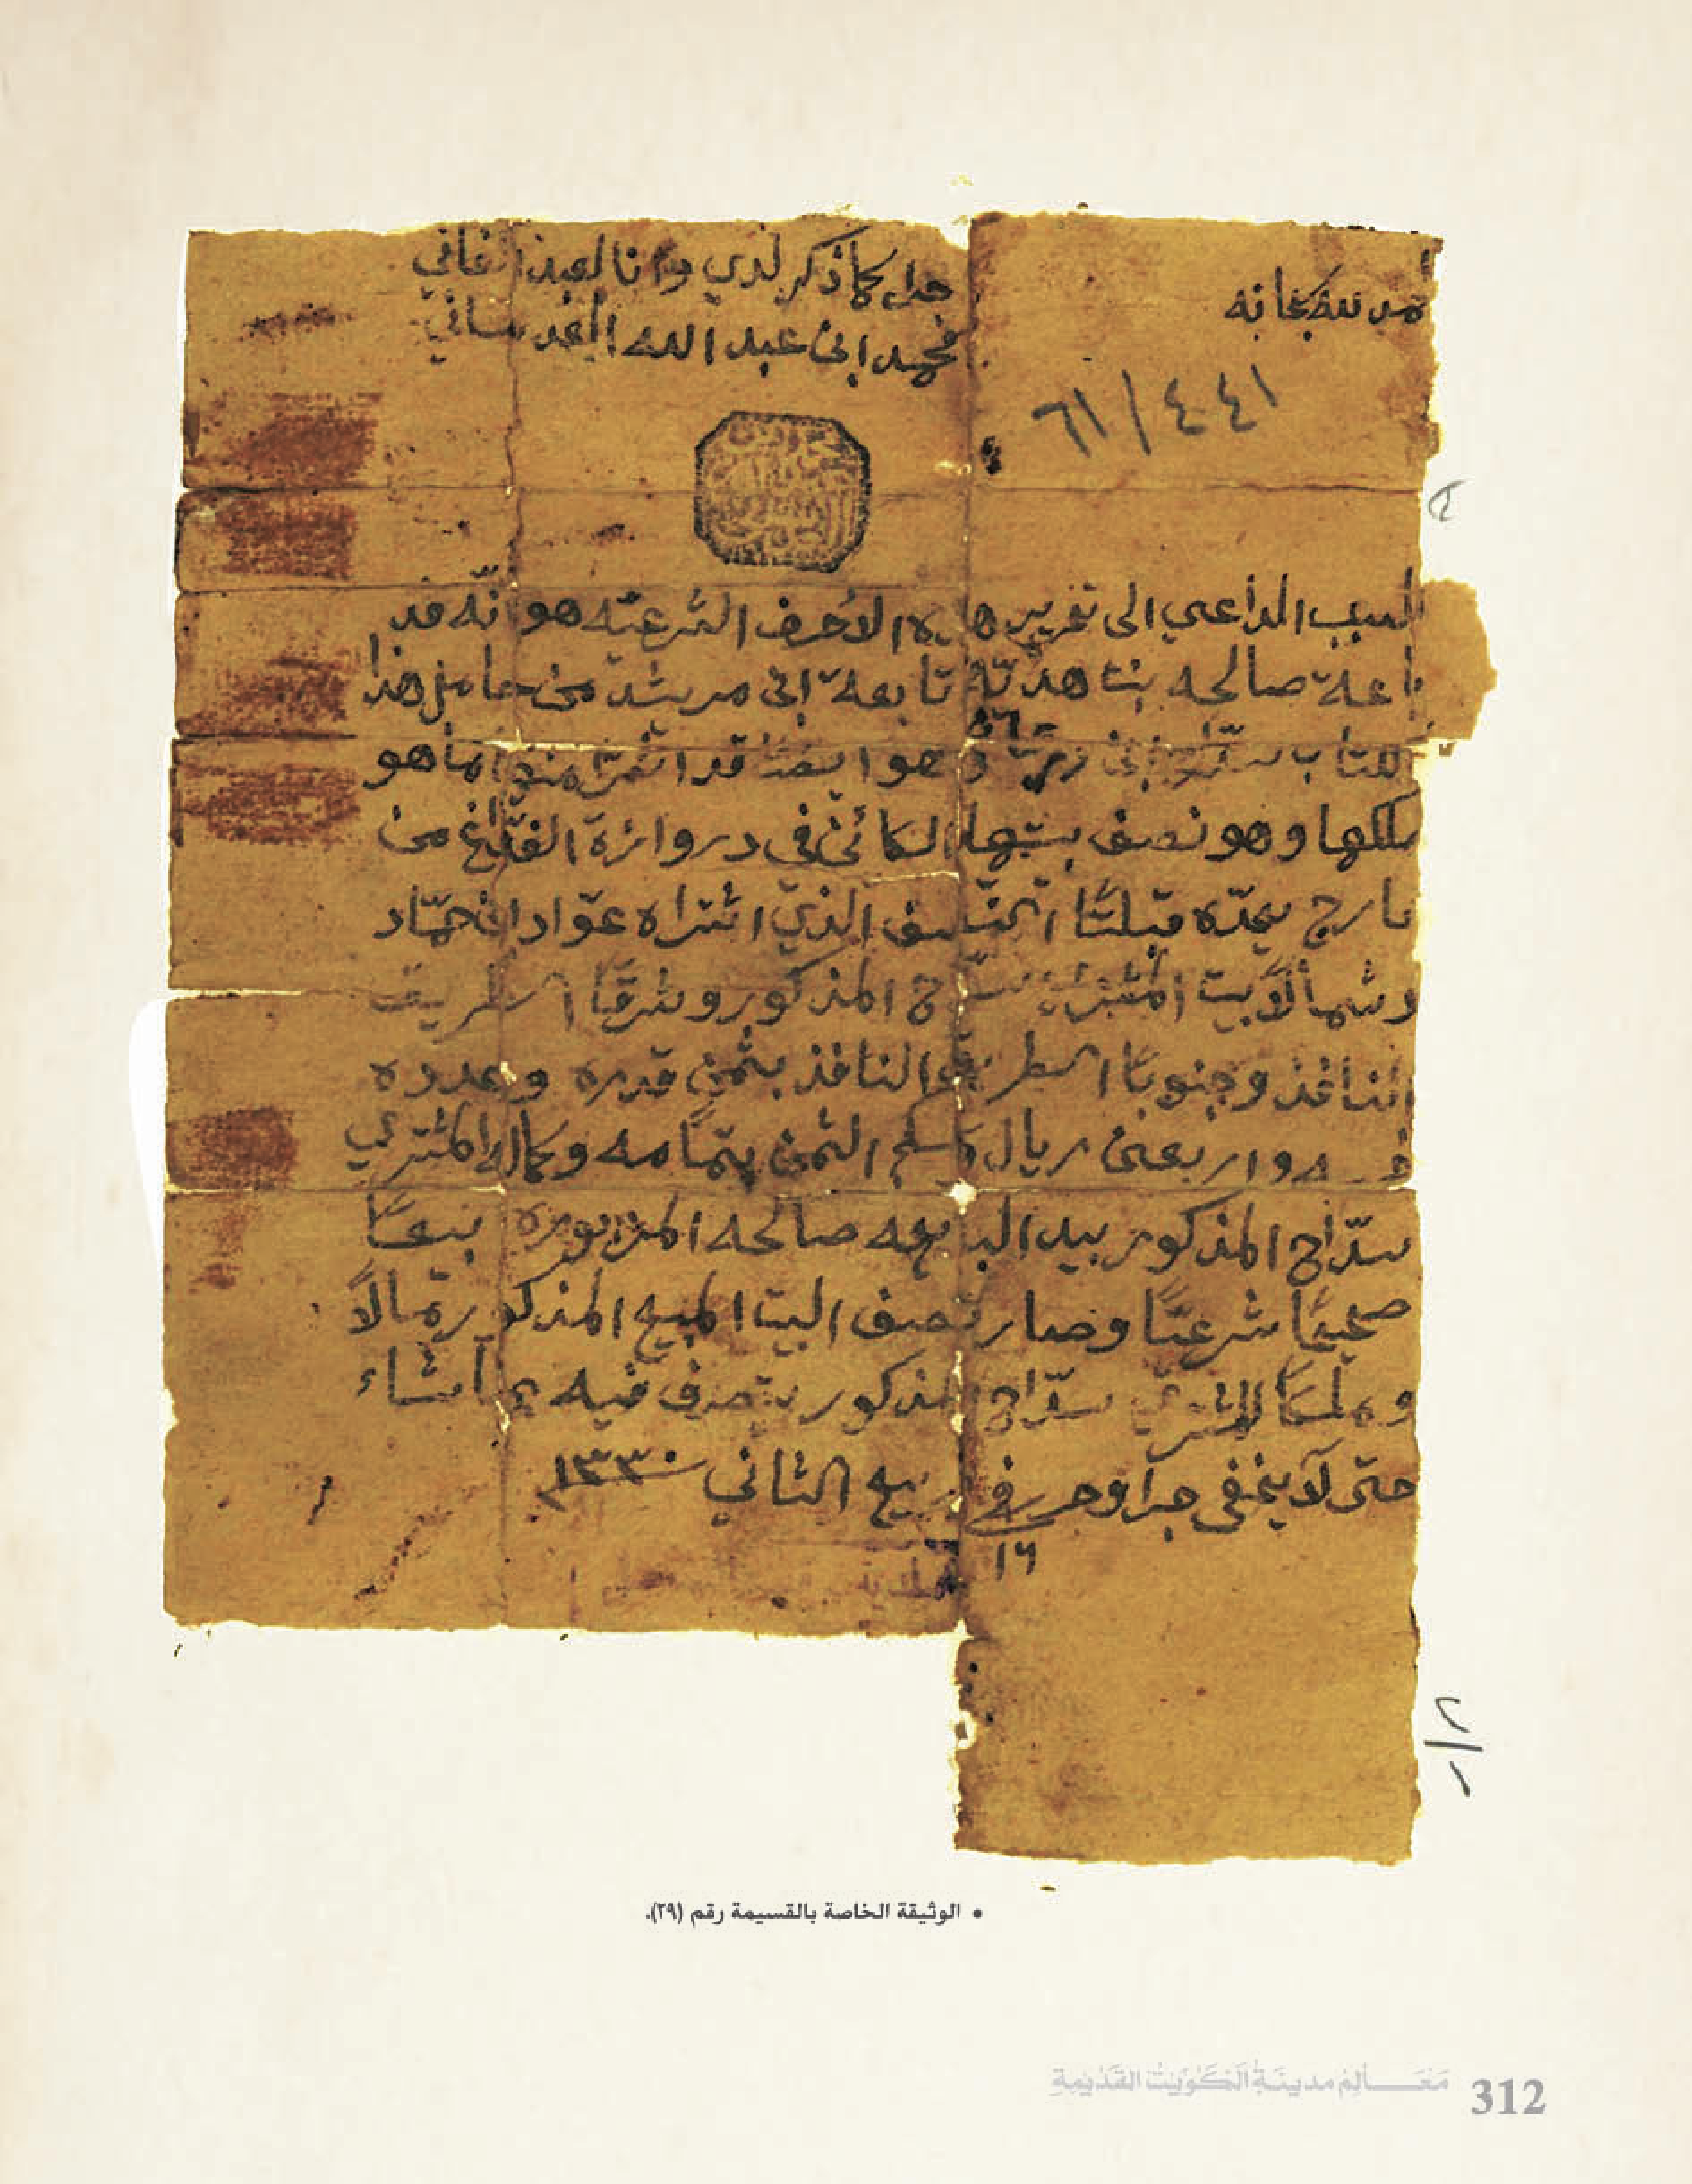 الحمد لله سبحانه
جرى كما ذكر لدي وانا العبد الفاني
محمد ابن عبد الله العدساني
٤٤١/٦١
السبب الداعي الى تحرير هذه الاحرف الشرعيّه هو انّه قد
باعة صالحه بنت هديّة تابعة ابن مرشد من حامل هذا
الكتاب سرّاج ابن وهو ايضًا قد اشترا منها ما هو
ملكها وهو نصف بيتها الكائن في دروازة الفدّاغ من
خارج يحدّه قبلتًا النصيف الذي اشتراه عوّاد ابن حمّاد
وشمالًا بيت المشتري سرّاج المذكور وشرقًا الطريق
النافذ وجنوبًا الطريق النافذ بثمن قدره وعدده
واربعين ريال سلم الثمن بتمامه وكماله المشتري
سرّاج المذكور بيد البايعه صالحه المزبوره بيعًا
صحيحًا شرعيًا وصار نصف البيت المبيع المذكور مالًا
وملكًا للمشتري سرّاج المذكور يتصرف فيه بما يشاء
حتى لا يخفى جرا وحرر في ربيع الثاني ١٣٣٠
١٦
٢/١
• الوثيقة الخاصة بالقسيمة رقم (٢٩).
مَعَالِم مدينَة الكُوَيت القَديمَة
312